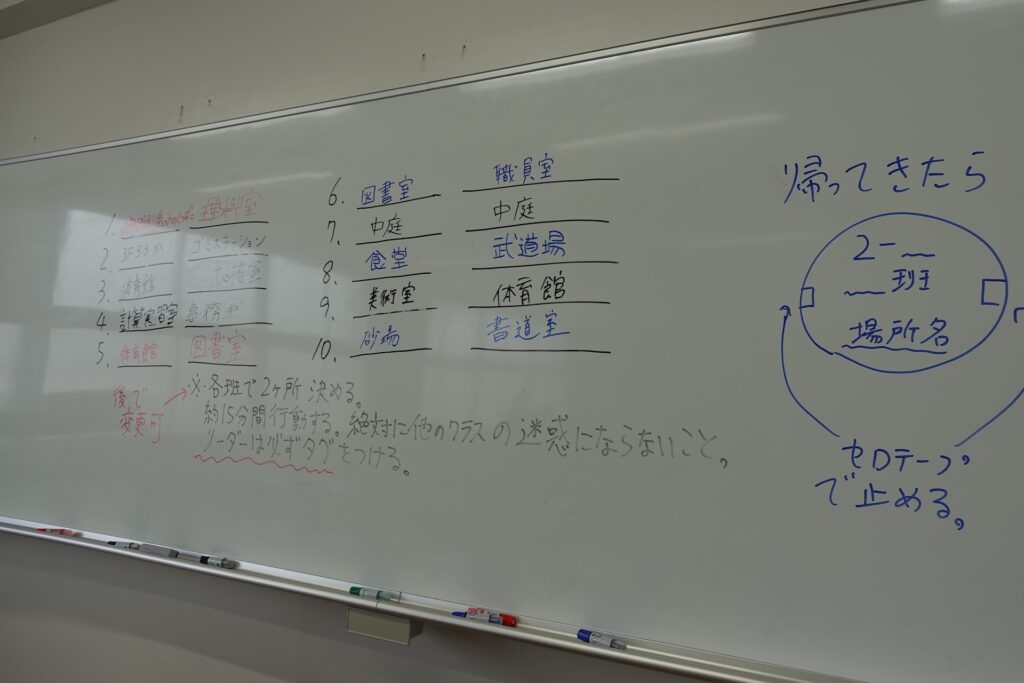 1. 理科室
2. 3Fろうか ゴミステーション
3. 体育館 応接室
4. 計算実習室 事務室
5. 体育館 図書室
6. 図書室 職員室
7. 中庭 中庭
8. 食堂 武道場
9. 美術室 体育館
10. 砂場 書道室
後で
変更可
※各班で2ヶ所決める。
約15分間行動する。絶対に他のクラスの迷惑にならないこと。
リーダーは必ずタグをつける。
帰ってきたら
2-__
__班
場所名
セロテープ
で止める。